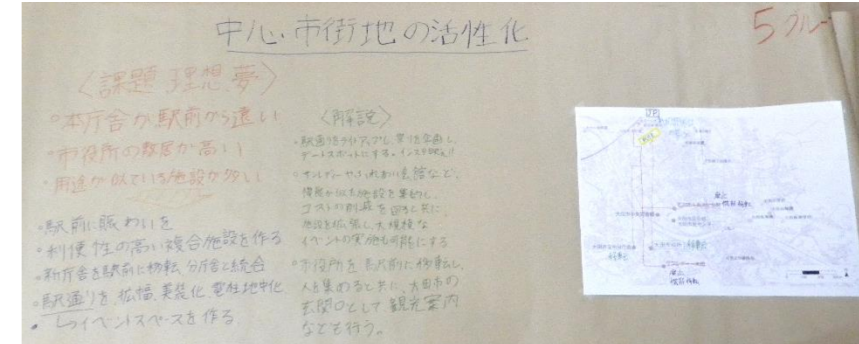 中心市街地の活性化
5グルー
〈課題、理想、夢〉
◦本庁舎が駅前から遠い
◦市役所の敷居が高い
◦用途が似ている施設が多い
◦駅前に賑わいを
◦利便性の高い複合施設を作る
◦新庁舎を駅前に移転、分庁舎と統合
◦駅通りを、拡幅、美装化、電柱地中化
・ └イベントスペースを作る
〈解説〉
◦駅通りをライトアップし、祭りを企画し、
デートスポットにする。インスタ映え!!
機能が似た施設を集約し、
コストの削減を図ると共に、
施設を拡張し、大規模な
イベントの実施も可能にする
◦市役所を駅前に移転し、
人を集めると共に、大田市の
玄関口として観光案内
なども行う。
JR
廃止
機能移転
移転
移転
廃止
機能移転